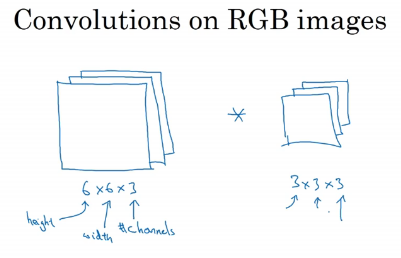 Convolutions on RGB images
*
6×6×3
3×3×3
height
width
#channels